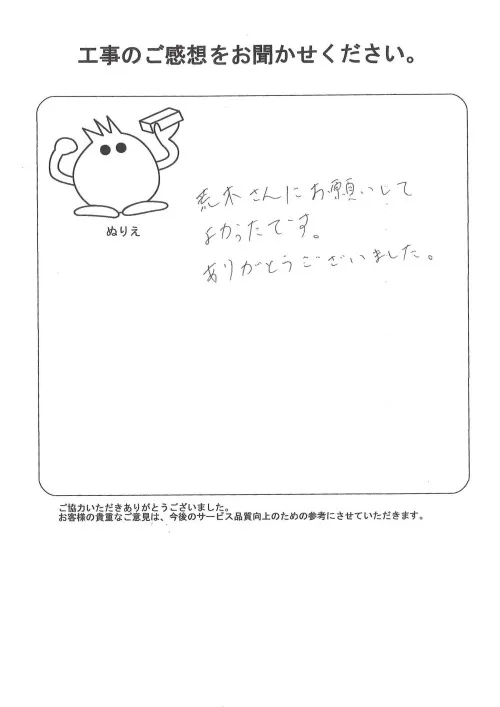 工事のご感想をお聞かせください。
ぬりえ
荒木さんにお願いして
よかったです。
ありがとうございました。
ご協力いただきありがとうございました。
お客様の貴重なご意見は、今後のサービス品質向上のための参考にさせていただきます。